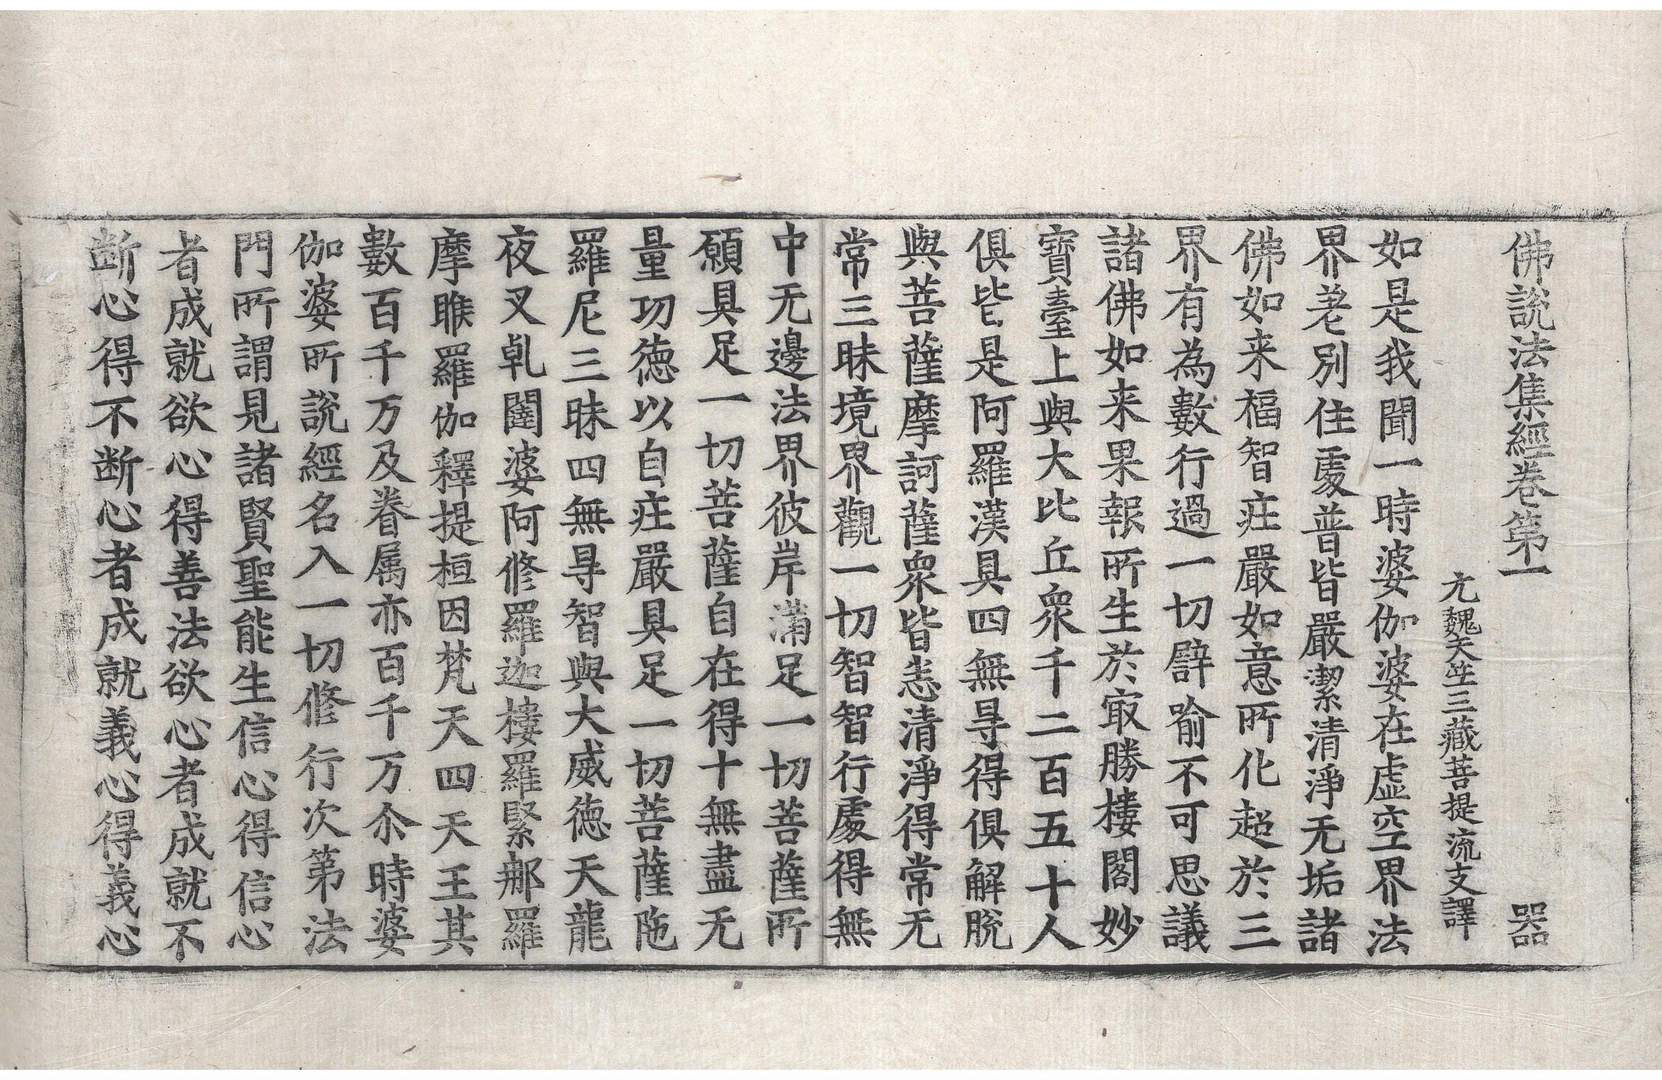 佛說法集經卷第一 器
元魏天竺三藏菩提流支譯
如是我聞一時婆伽婆在虛空界法
界差別住處普皆嚴潔清淨无垢諸
佛如来福智莊嚴如意所化超於三
界有為數行過一切譬喻不可思議
諸佛如来果報所生於㝡勝樓閣妙
寶臺上與大比丘衆千二百五十人
俱皆是阿羅漢具四無㝵得俱解脫
與菩薩摩訶薩衆皆悉清淨得常无
常三昧境界觀一切智智行處得無
中无邊法界彼岸滿足一切菩薩所
願具足一切菩薩自在得十無盡无
量功德以自莊嚴具足一切菩薩陁
羅尼三昧四無㝵智與大威德天龍
夜叉乹闥婆阿修羅迦樓羅緊那羅
摩睺羅伽釋提桓因梵天四天王其
數百千万及眷属亦百千万尒時婆
伽婆所說經名入一切修行次第法
門所謂見諸賢聖能生信心得信心
者成就欲心得善法欲心者成就不
断心得不断心者成就義心得義心